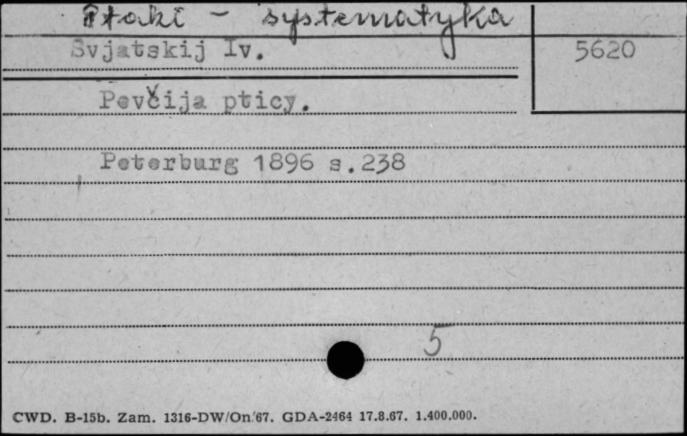 Ptaki - systematyka
Svjatskij Iv.
5620
Pevčija pticy.
Peterburg 1896 s.238
5
CWD. B-15b. Zam. 1316-DW/On/67. GDA-2464 17.8.67. 1.400.000.